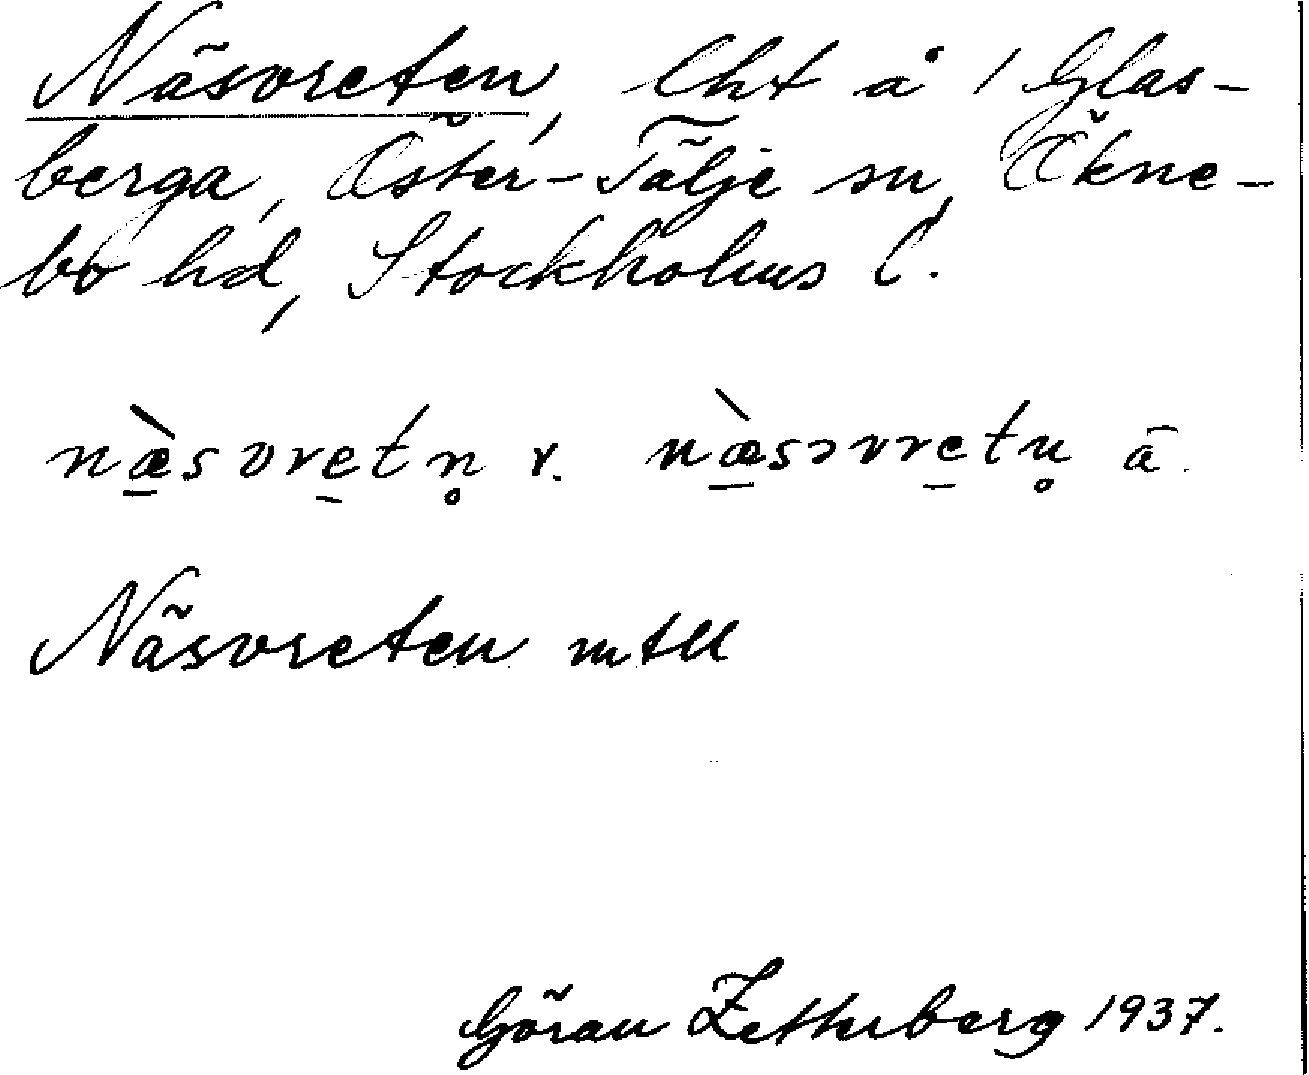 Näsvreten, lht å 1 Glas-
berga, Öster-Tälje sn, Ökne-
bo hd, Stockholms l.
næ̀svretn̥ r. næ̀sɔvretn̥ ä.
Näsvreten mtll
Göran Zetterberg 1937.